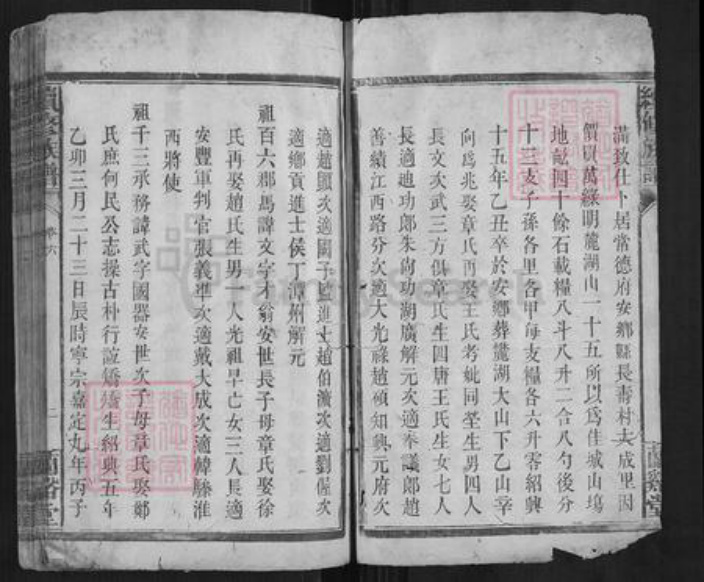 滿致仕卜居常德府安鄉縣長壽村大成里因
價買萬綠明麓湖山一十五所以爲佳城山塲
地畝四十餘石載糧八斗八升二合八勺後分
十三支子孫各里各甲每支糧各六升零紹興
十五年乙丑卒於安鄉葬麓湖大山下乙山辛
向爲兆娶章氏再娶王氏考妣同塋生男四人
長文次武三方俱章氏生四唐王氏生女七人
長適迪功郎朱向功湖廣解元次適奉議郎趙
善績江西路分次適大光祿趙碩知興元府次
適趙顥次適國子監進士趙伯澬次適劉偓次
適鄉貢進士侯丁潭州解元
祖百六郡馬諱文字才翁安世長子母章氏娶徐
氏再娶趙氏生男一人光祖早亡女三人長適
安豐軍判官張義準次適戴大成次適韓騄淮
西將使
祖千三承務諱武字國器安世次子母章氏娶鄭
氏庶何氏公志操古朴行誼矯矯生紹興五年
乙卯三月二十三日辰時寧宗嘉定九年丙子
續修族譜
卷六
蘭谿堂